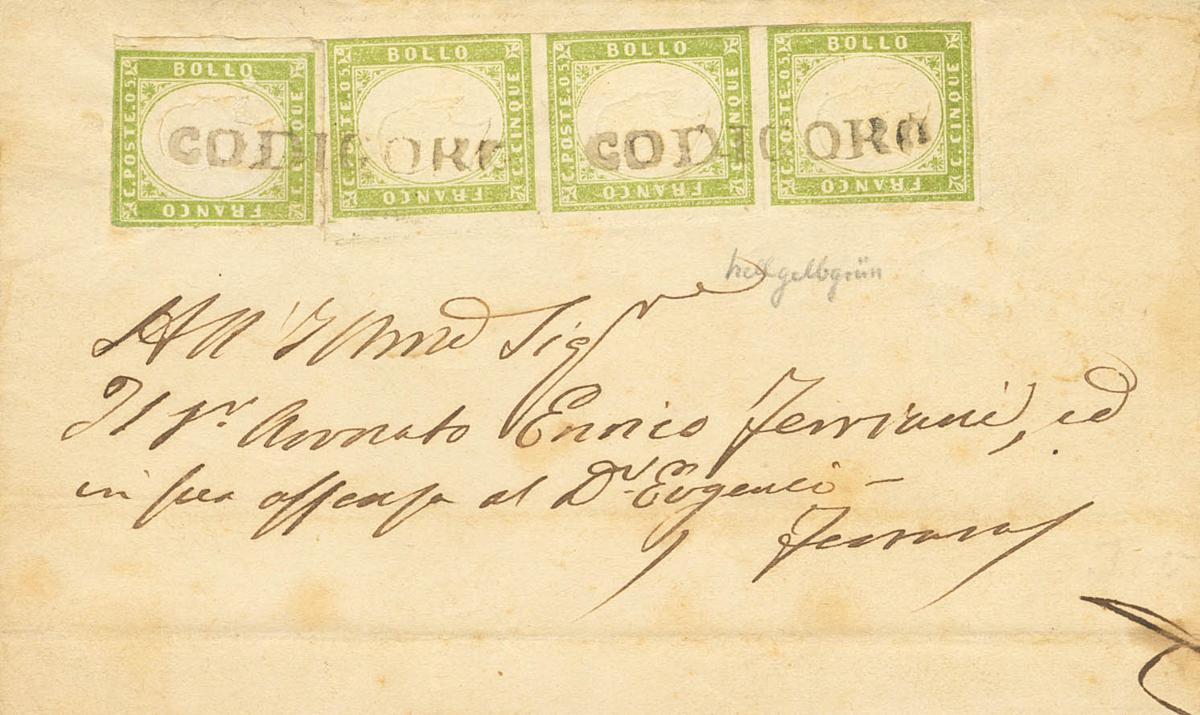 BOLLO BOLLO BOLLO BOLLO
C. POSTE. 05. C. CINQUE C. POSTE. 05. C. CINQUE C. POSTE. 05. C. CINQUE C. POSTE. 05. C. CINQUE
CODIGORO CODIGORO
FRANCO FRANCO FRANCO FRANCO
hellgelbgrün
All' Illmo Sigre
Il Sr. Avvocato Enrico Ferriani, ed
in sua assenza al Dr. Eugenio –
Ferrara